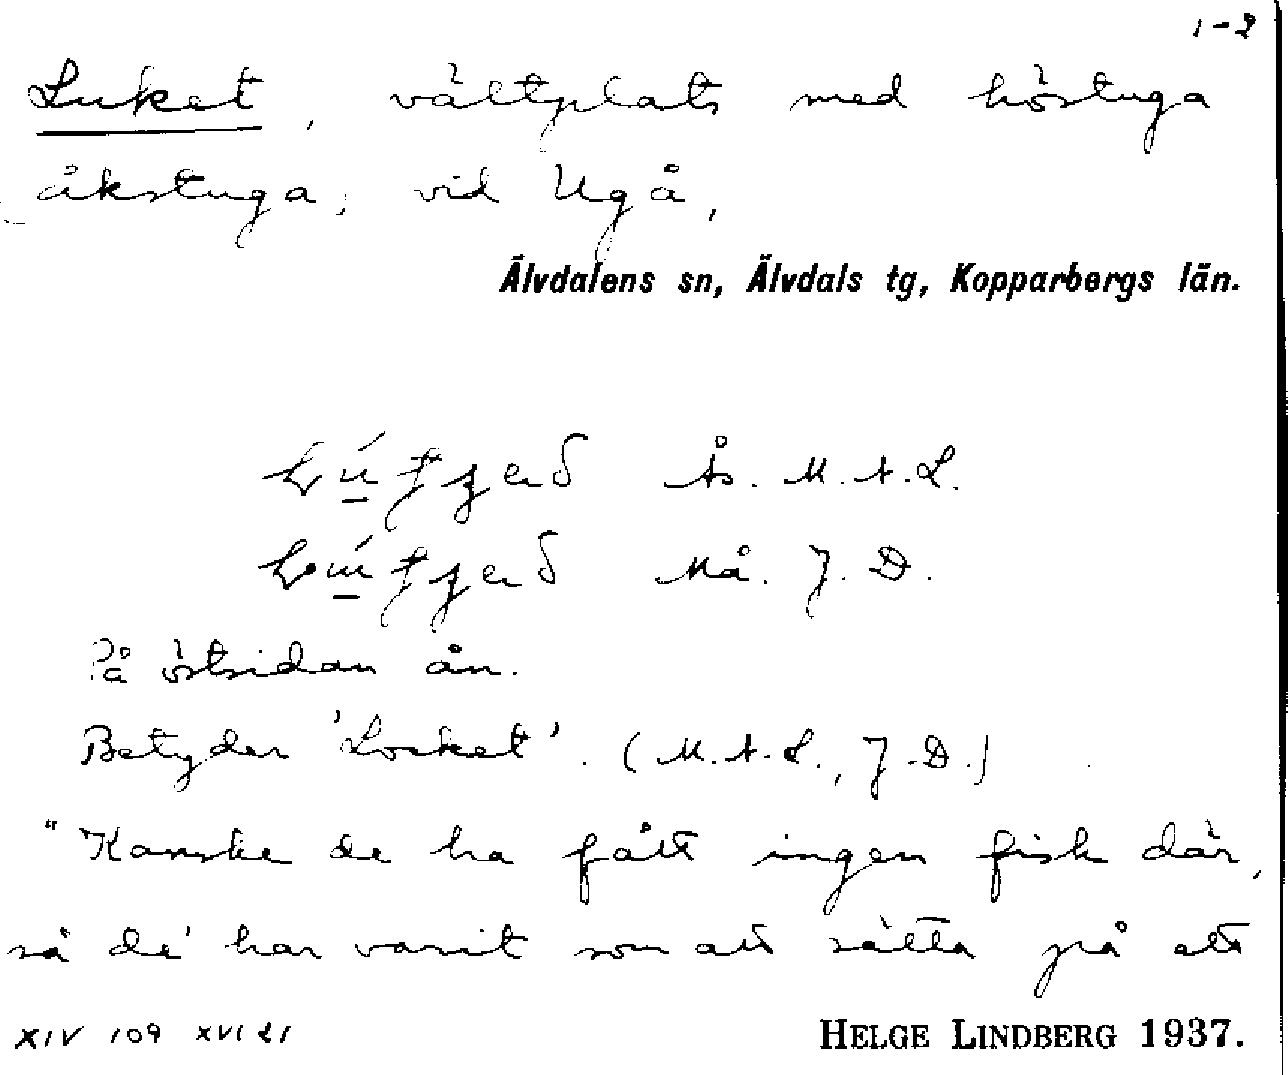 1-2
Luket, vältplats med höstuga
åkstuga; vid Ugå,
Älvdalens sn, Älvdals tg, Kopparbergs län.
Ås. M.A.L.
Må. J. D.
På östsidan ån.
Betyder 'Locket'. (M.A.L., J.D.)
"Kanske de ha fått ingen fisk där,
så de' har varit som att sätta på ett
XIV 109 XVI 21
HELGE LINDBERG 1937.